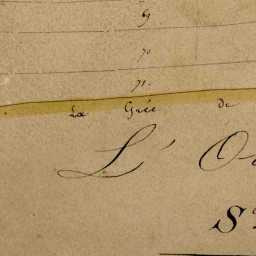 69
70
71.
La Grée de
L' O
S